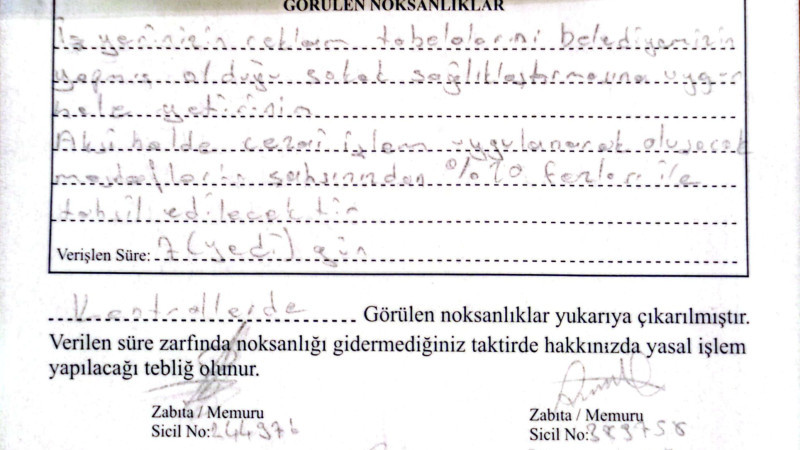 GÖRÜLEN NOKSANLIKLAR
İş yerinizin reklam tabelalarını belediyemizin
yapmış olduğu sokak sağlıklaştırmasına uygun
hale getirinin
Aksi halde cezai işlem uygulanarak oluşacak
masrafların şahsınızdan %20 fazlası ile
tahsil edilecektir
Verişlen Süre: 7 (yedi) gün
Kontrollerde Görülen noksanlıklar yukarıya çıkarılmıştır.
Verilen süre zarfında noksanlığı gidermediğiniz taktirde hakkınızda yasal işlem
yapılacağı tebliğ olunur.
Zabıta / Memuru Zabıta / Memuru
Sicil No: 244976 Sicil No: 389758